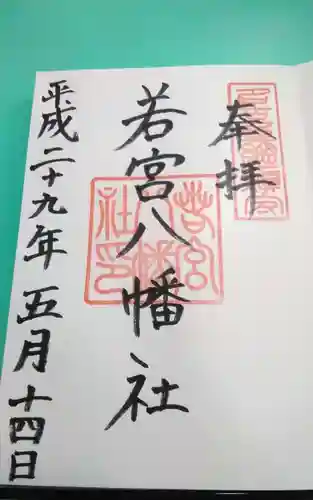 奉拝
若宮八幡社
若宮八幡社印
平成二十九年五月十四日